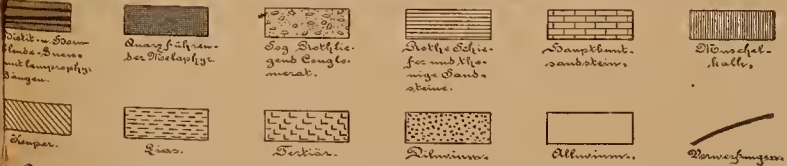 Biotit- u. Horn-
blende-Gneis
mit lamprophyr.
Gängen.
Quarzführen-
der Melaphyr.
Sog. Rothlie-
gend Conglo-
merat.
Rothe Schie-
fer und tho-
nige Sand-
steine.
Hauptbunt-
sandstein.
Muschel-
kalk.
Keuper.
Lias.
Tertiär.
Diluvium.
Alluvium.
Verwerfungen.